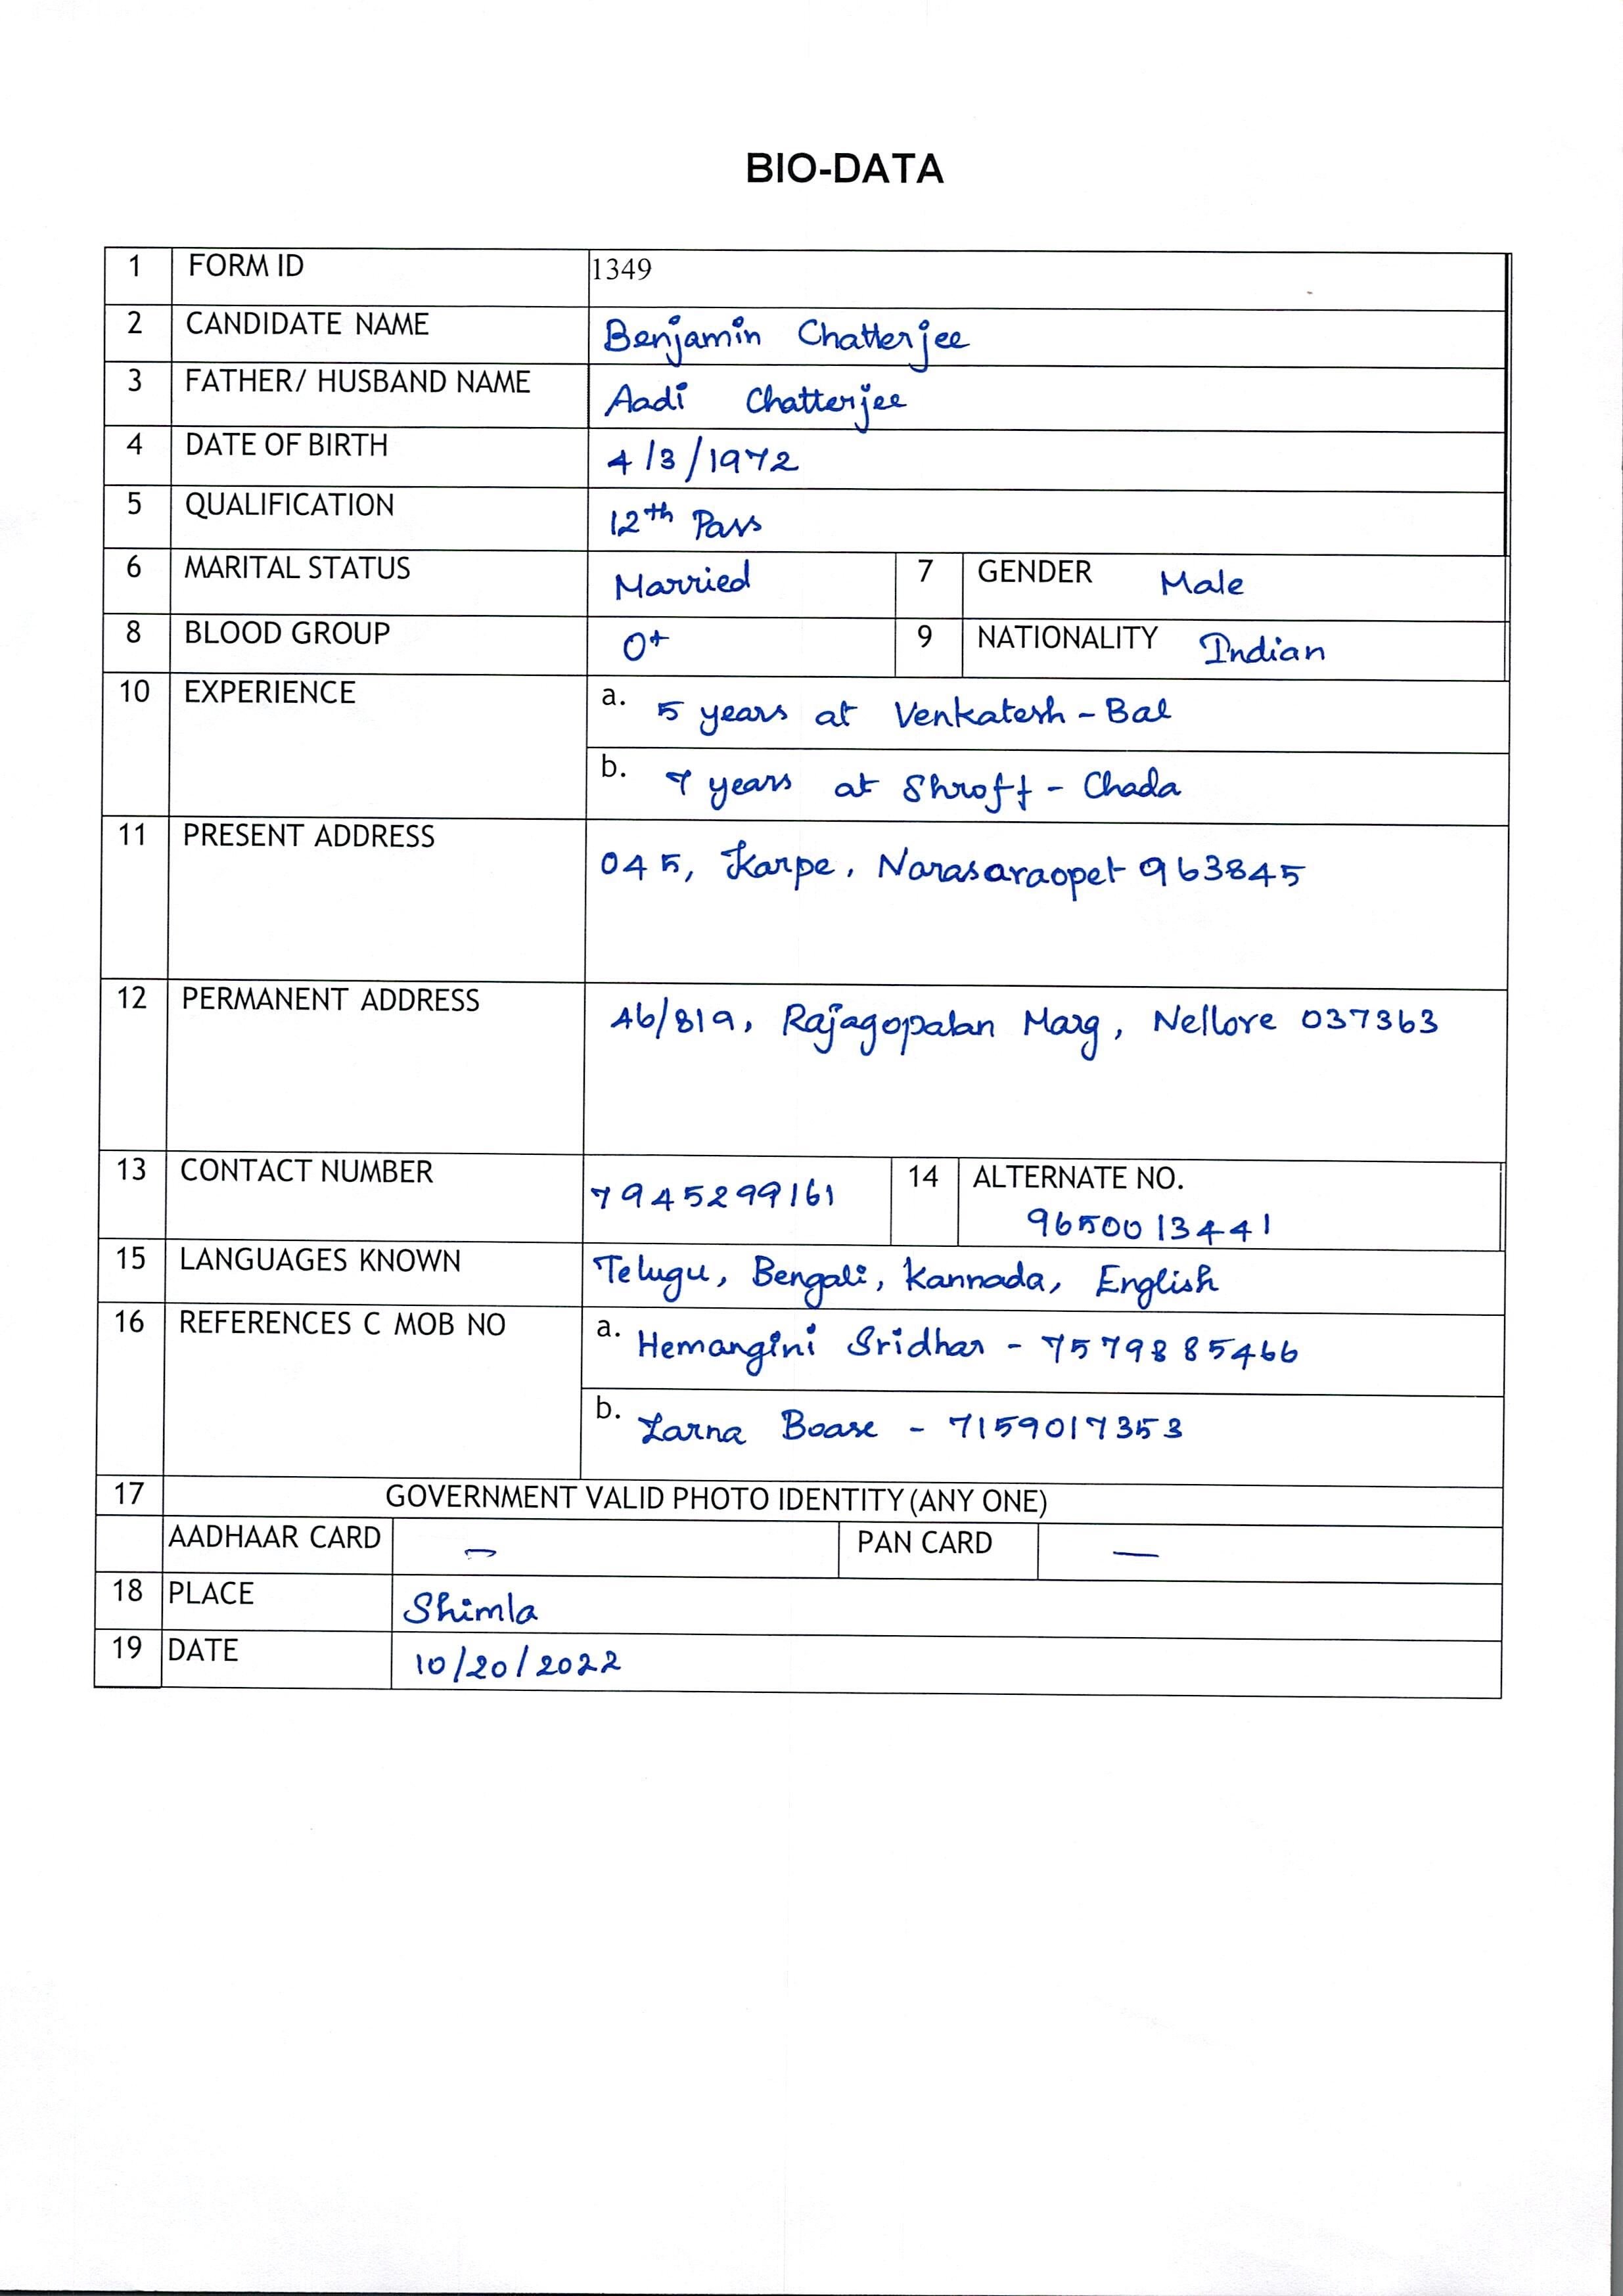 BIO-DATA
1 FORM ID 1349
2 CANDIDATE NAME Benjamin Chatterjee
3 FATHER/ HUSBAND NAME Aadi Chatterjee
4 DATE OF BIRTH 4/3/1972
5 QUALIFICATION 12th Pass
6 MARITAL STATUS Married 7 GENDER Male
8 BLOOD GROUP O+ 9 NATIONALITY Indian
10 EXPERIENCE a. 5 years at Venkatesh - Bal
b. 7 years at Shroff - Chada
11 PRESENT ADDRESS 045, Karpe, Narasaraopet 963845
12 PERMANENT ADDRESS 46/819, Rajagopalan Marg, Nellore 037363
13 CONTACT NUMBER 7945299161 14 ALTERNATE NO.
9650013441
15 LANGUAGES KNOWN Telugu, Bengali, Kannada, English
16 REFERENCES C MOB NO a. Hemangini Sridhar - 7579885466
b. Zarna Boase - 7159017353
17 GOVERNMENT VALID PHOTO IDENTITY (ANY ONE)
AADHAAR CARD — PAN CARD —
18 PLACE Shimla
19 DATE 10/20/2022